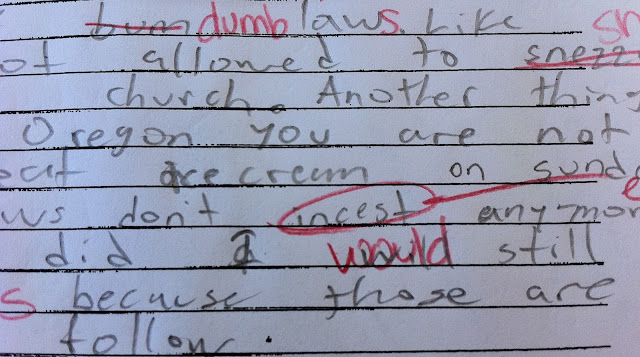 bum dumb laws. Like sn
ot allowed to snezz
church. Another thing
Oregon you are not
eat ice cream on sund
ws don't incest any-mor e
did I would still
s because those are
follow.